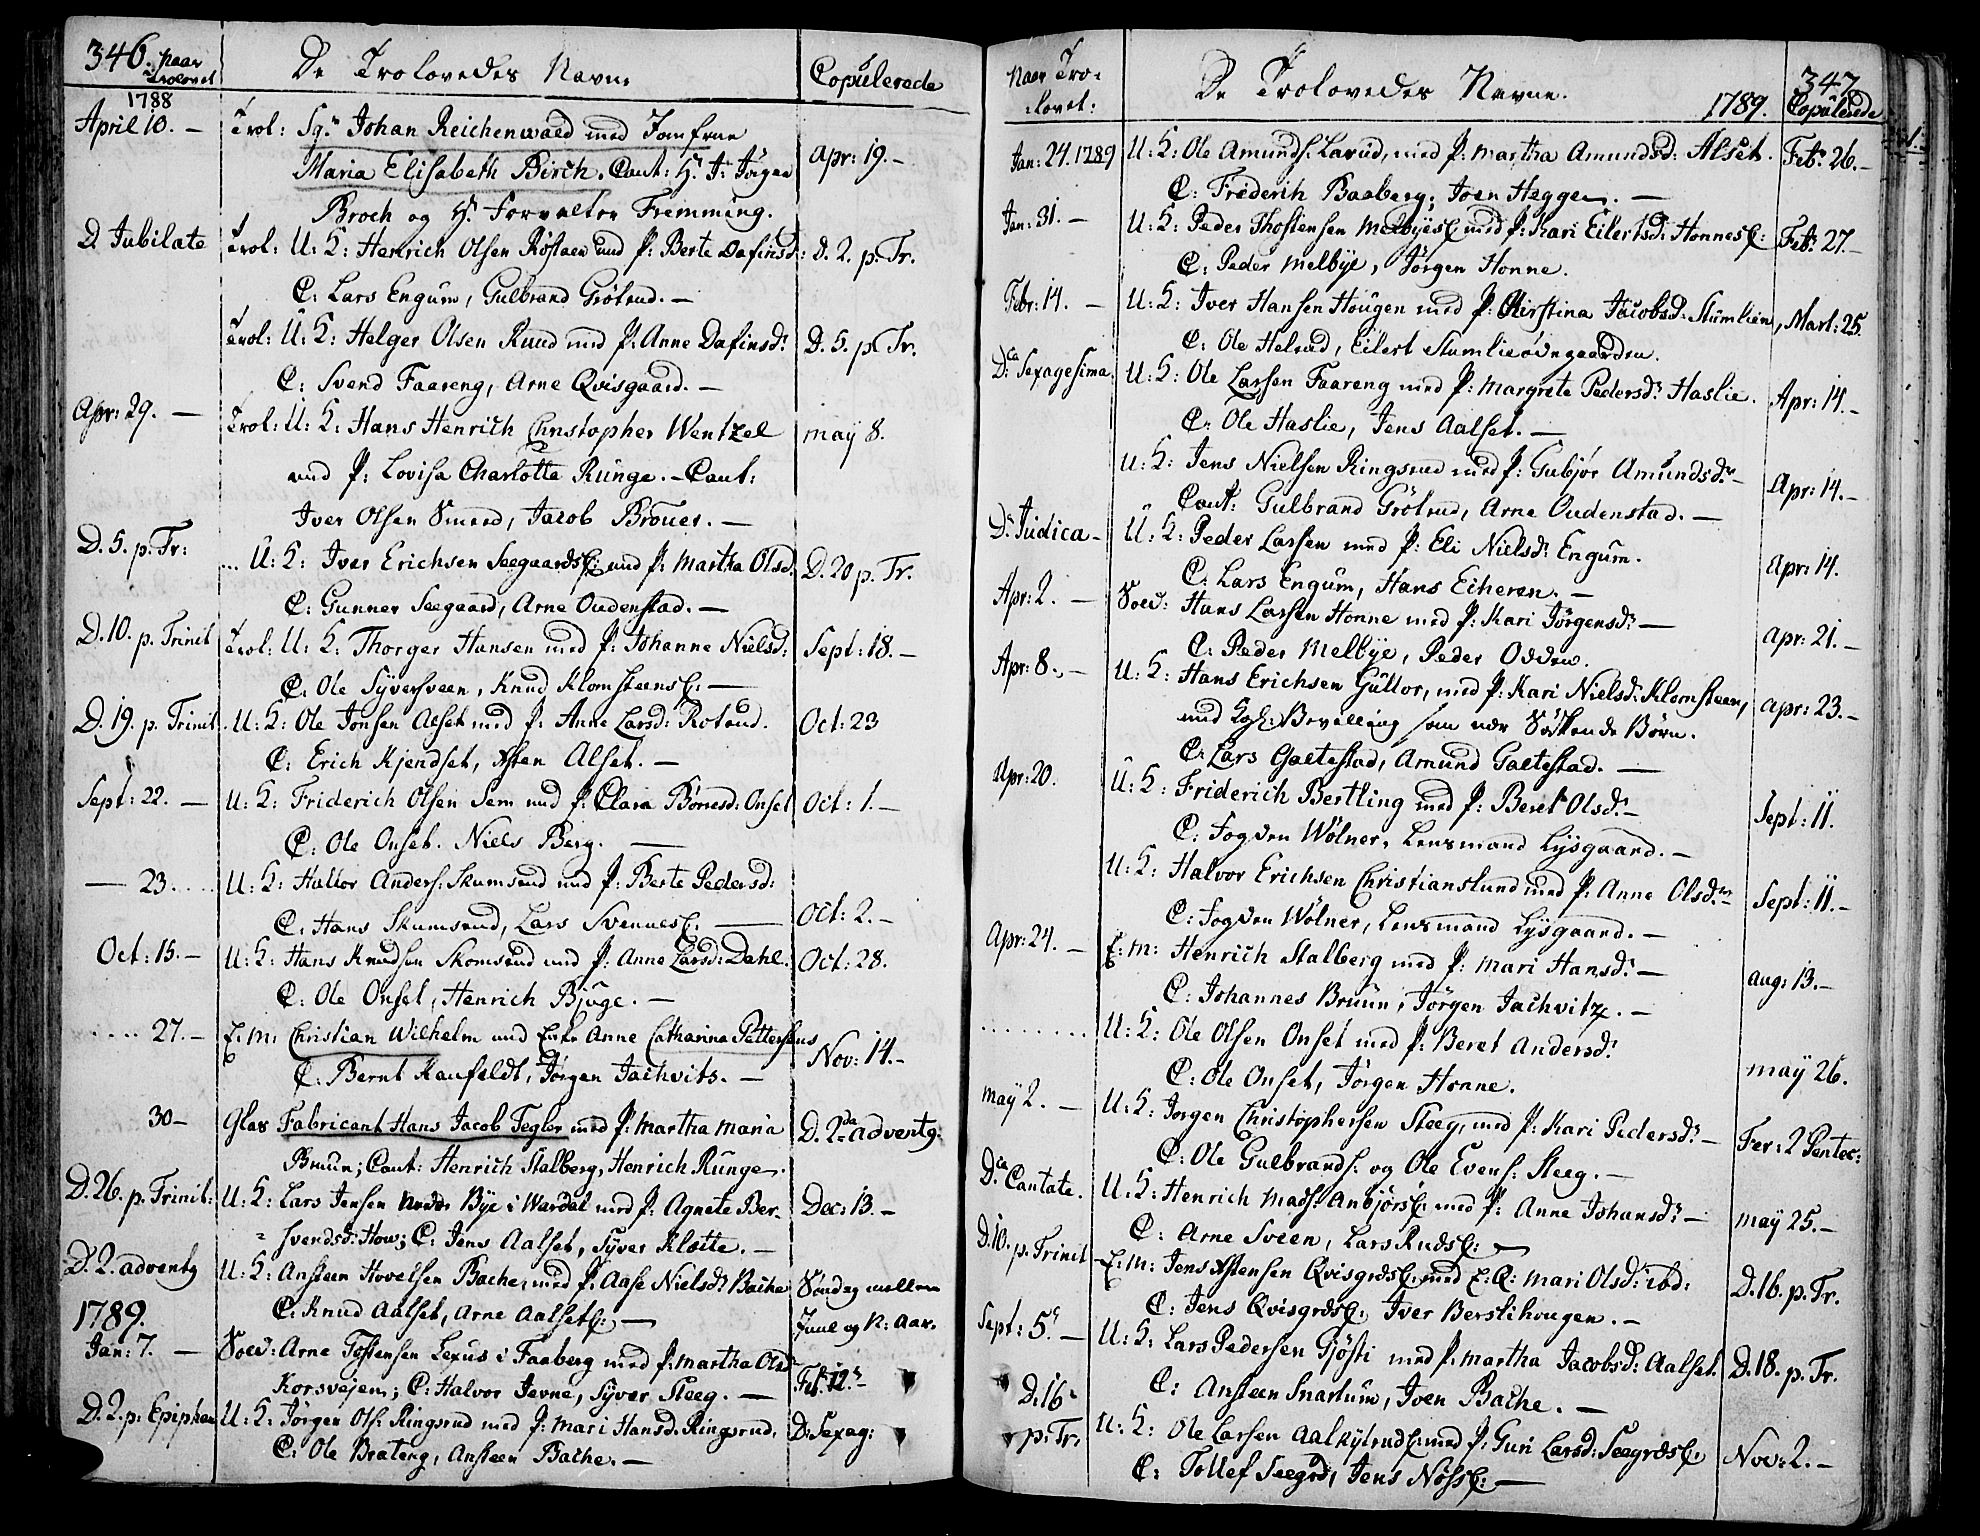 346. Naar Trolovet
De Trolovedes Navne
Copulerede
1788
April 10. — Trol: Sgr. Johan Reichenwald med Jomfrue
Maria Elisabeth Birch. Caut: Hr. J: Jørgen Apr: 19. —
Broch og Hr. Forvalter Fremming.
D. Jubilate Trol: U: K: Henrich Olsen Røstaen med P: Berte Dafinsd: D. 2. p. Tr.
C: Lars Engum, Gulbrand Grötrud. —
Trol: U: K: Helger Olsen Ruud med P: Anne Dafinsdr. D. 5. p. Tr.
C: Svend Faareng, Arne Qvisgaard. —
Apr: 29. — Trol: U: K: Hans Henrich Christopher Wentzel may 8.
med P: Lovisa Charlotte Runge. — Caut:
Iver Olsen Smed, Jacob Broues. —
D. 5. p. Tr: ... U: K: Iver Erichsen Seegaards: med P: Martha Olsd. D. 20 p. Tr.
C: Gunner Seegaard, Arne Oudenstad. —
D. 10. p. Trinit Trol: U: K: Thorger Hansen med P: Johanne Nielsd: Sept: 18. —
C. Ole Syversveen, Knud Klomsteens: —
D. 19. p. Trinit. U: K: Ole Jonsen Alset med P: Anne Larsd: Rotrud. Oct: 23
C: Erich Kjendset, Asten Alset. —
Sept: 22. — U: K: Friderich Olsen Sem med P: Clara Börresd: Onset Oct: 1. —
C: Ole Onset. Niels Berg. —
— 23. .... U: K: Halvor Anders: Skumsrud med P: Berte Pedersd:
C: Hans Skumsrud, Lars Svennes: — Oct: 2. —
Oct: 15. — U: K: Hans Knudsen Skomsrud med P: Anne Larsd: Dahl. Oct: 28.
C: Ole Onset, Henrich Bjuge. —
.... 27. — E: m: Christian Wilhelm med Enke Anne Catharina Pettersens Nov: 14. —
C: Bernt Kaufeldt, Jørgen Jachvits. —
30 — Glas Fabricant Hans Jacob Fegler med P: Martha Maria D. 2da adventg:
Bruun; Caut: Henrich Stalberg, Henrich Runge. —
D. 26. p. Trinit: U: K: Lars Jensen Bye i Wardal med P: Agnete Ber- Dec: 13. —
svendsd: How; C: Jens Aalset, Syver Klötte. —
D. 2. adventg U: K: Ansteen Hovelsen Bache, med P. Aase Nielsdr Bache Söndag mellem
C: Knud Aalset, Arne Aalsets: — Juul og N: Aar.
1789.
Jan: 7. — Soed: Arne Tostensen Lexus i Faaberg med P: Martha Olsd
Korsvejen; C: Halvor Jevne, Syver Steeg. — Feb: 12. —
D. 2. p: Epiphan U: K: Jörgen Ols: Ringsrud med P: Mari Hansd. Ringsrud. D: Sexag:
C: Ole Brateng, Ansteen Bache. —
Naar Tro-lovet:
De Trolovedes Navne.
1789.
347.
Copulerede
Jan: 24. 1789 U: K: Ole Amunds: Larud, med P: Martha Amundsd: Alset. Feb: 26. —
C: Friderich Baaberg, Joen Heggen. —
Jan: 31. — U: K: Peder Thostensen Melbyes: med P: Kari Eilertsd: Honnes: Feb: 27. —
C: Peder Melbye, Jörgen Honne.
Febr: 14. — U: K: Iver Hansen Hougen med P: Chirstina Jacobsd: Stumlien, Mart: 25.
C: Ole Helrud, Eilert Stumlieødegaarden.
Dca Sexagesima. U: K: Ole Larsen Faareng med P: Margrete Pedersdr. Haslie. Apr: 14. —
C: Ole Haslie, Jens Aalset. —
U: K: Jens Nielsen Ringsrud med P: Gubjör Amundsdr. — Apr: 14. —
Caut: Gulbrand Grötrud, Arne Oudenstad. —
D. Judica — U: K: Peder Larsen med P: Eli Nielsdr. Engum. Apr: 14.
C: Lars Engum, Hans Eikeren. —
Apr: 2. — Soed: Hans Larsen Honne med P: Kari Jörgensdr. — Apr: 21. —
C: Peder Melbye, Peder Odden.
Apr: 8. — U: K: Hans Erichsen Gullor, med P: Kari Nielsd: Klomsteen, Apr: 23. —
med Kgl: Bevilling som nær Södskende Börn.
C: Lars Galtestad, Amund Galtestad. —
Apr: 20. U: K: Friderich Bertling med P: Beret Olsdr. — Sept: 11.
C: Fogden Wölner, Lensmand Lysgaard. —
U: K: Halvor Erichsen Christianslund med P: Anne Olsdr. — Sept: 11. —
C: Fogden Wölner, Lensmand Lysgaard. —
Apr: 24. — E: m: Henrich Stalberg med P: Mari Hansdr. — Aug: 13. —
C: Johannes Bruun, Jörgen Jachvitz. —
........ U: K: Ole Olsen Onset med P: Beret Andersdr. may 26.
C: Ole Onset, Jörgen Honne.
May 2. — U: K: Jorgen Christophersen Steeg, med P: Kari Pedersdr. — Fer: 2 Pentec:
C: Ole Gulbrands: og Ole Evens: Steeg. —
Dca Cantate. U: K: Henrich Mads: Anbjörs: med P: Anne Johansdr. — may 25. —
C: Arne Sveen, Lars Ruds: —
D. 10. p. Trinit — E: m: Jens Astensen Qvisgrds: med E: Q: Mari Olsd: ibd: D. 16. p. Tr.
C: Jens Qvisgrds: Iver Berslihougen. —
Sept: 5. — U: K: Lars Pedersen Gjösti med P: Martha Jacobsd: Aalset. D. 18. p. Tr.
C: Ansteen Snartum, Iven Bache. —
D. 16 p. Tr. U: K: Ole Larsen Aalkylruds: med P: Guri Larsd: Seegrds: Nov: 2. —
C: Tollef Seegrd, Jens Nöss: —